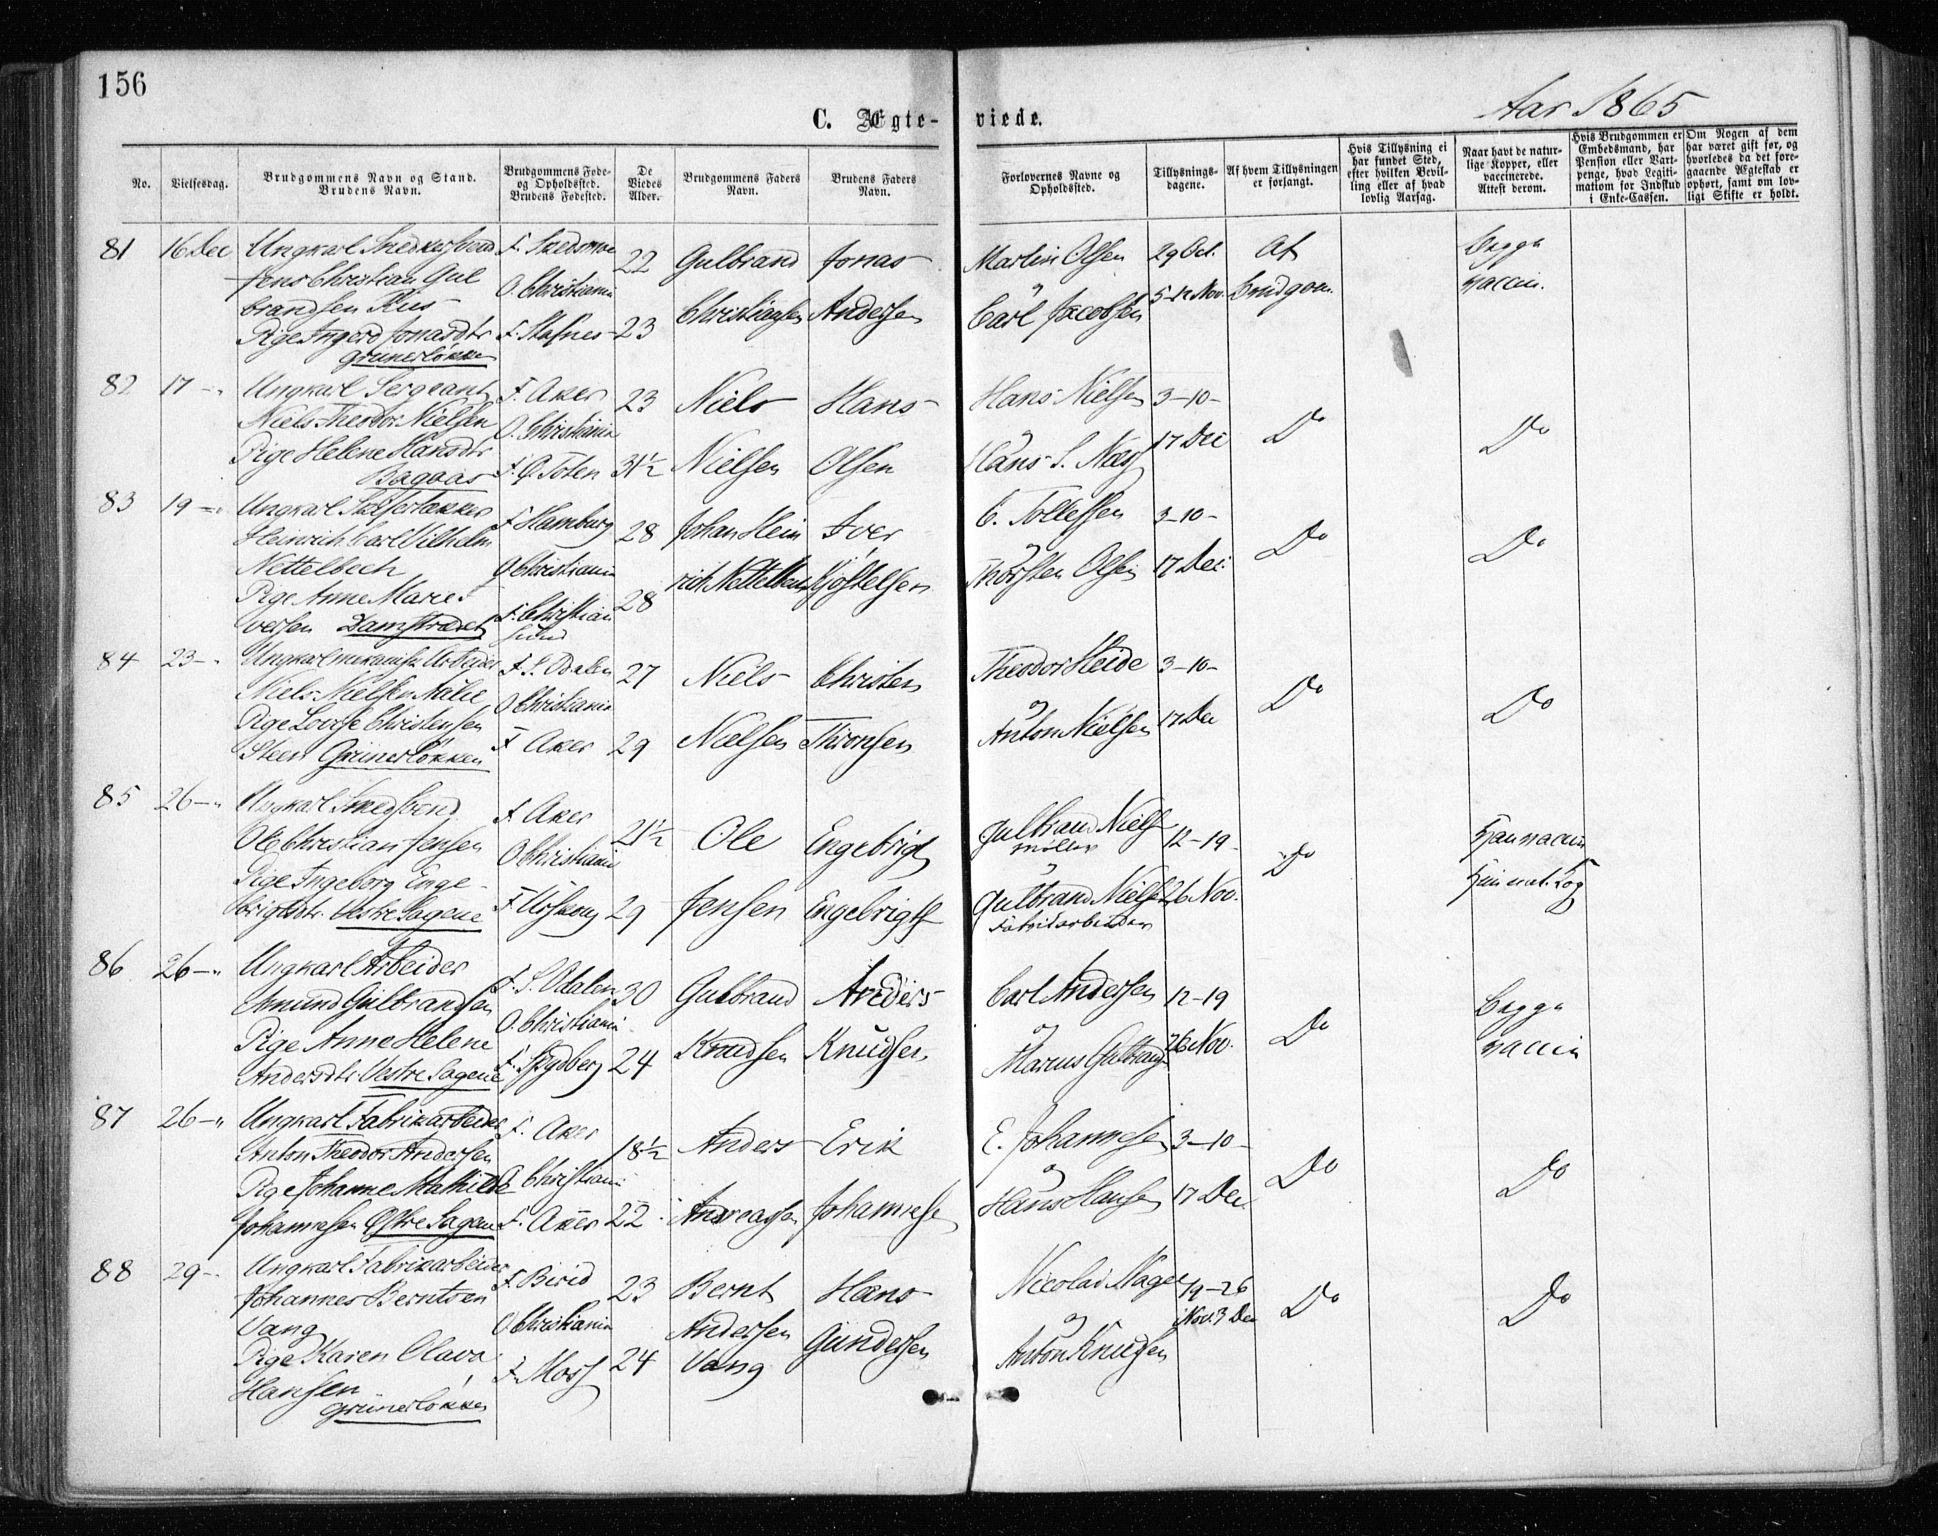 156
C. Ægte-
viede.
Aar 1865
No.
Vielsesdag.
Brudgommens Navn og Stand.
Brudens Navn.
Brudgommens Føde-
og Opholdssted.
Brudens Fødested.
De
Viedes
Alder.
Brudgommens Faders
Navn.
Brudens Faders
Navn.
Forlovernes Navne og
Opholdssted.
Tillysnings-
dagene.
Af hvem Tillysningen
er forlangt.
Hvis Tillysning ei
har fundet Sted,
efter hvilken Bevil-
ling eller af hvad
lovlig Aarsag.
Naar havt de natur-
lige Kopper, eller
vaccinerede.
Attest derom.
Hvis Brudgommen er
Embedsmand, har
Pension eller Vart-
penge, hvad Legiti-
mation for Indskud
i Enke-Cassen.
Om Nogen af dem
har været gift før, og
hvorledes da det fore-
gaaende Ægteskab er
ophørt, samt om lov-
ligt Skifte er holdt.
81 16 Dec Ungkarl Snedkersvend F. Skedsmo 22 Gulbrand Jonas Martin Olsen 29 Oct. Af Begge
Jens Christian Gul O. Christiania og 5-12 Nov. Brudgom. vaccin.
brandsen Christiansen Andersen Carl Jacobsen
Pige Ingerd Jonasdtr 23
Grünerløkken
82 17 -" Ungkarl Sergeant F. Aker 23 Niels Hans Hans Nielsen 3-10-
Niels Theodor Nielsen O. Christiania og 17 Dec Do Do
Pige Helene Hansdtr F. Ø. Toten 31½ Nielsen Olsen Hans S.
83 19 -" Ungkarl F. Hamburg 28 Johan Hein Iver C. Tollefsen 3-10-
Heinrich Carl Vilhelm og Do Do
Nettelbech O Christiania rich Nettelbech Kjøstelsen Thorsten Olsen 17 Dec.
Pige Anne Marie I F. Christian 28
versen Damstrædet sund
84 23 -" Ungkarl mekanisk Arbeider F. S. Odalen 27 Niels Christen Theodor Heide 3-10-
Niels Nielsen O Christiania og Do Do
Pige Lovise Christensen Anton Nielsen 17 Dec
Steen Grünerløkken F Aker 29 Nielsen Thronsen
85 26 -" Ungkarl Smedsvend F. Aker 21½ Ole Engebrigt Gulbrand Niels 12-19- Han vaccin
Ole Christian Jensen O Christiania Møller Do
Pige Ingeborg Enge- og Hun nat. Kop
brigtsdtr. Vestre Sagene F Urskoug 29 Jensen Engebrigts Gulbrand Niels 26 Nov.
Fabrikarbeider
86 26 -" Ungkarl Arbeider F. S. Odalen 30 Gulbrand Anders Carl Andersen 12-19 Begge
Amund Gulbrandsen O. Christiania og Do
Pige Anne Helene F. Spydberg 24 Knudsen Knudsen Marius Gulbrands 26 Nov. vaccin
Andersdtr Vestre Sagene
87 26 -" Ungkarl Fabrikarbeider F. Aker 18½ Anders Erik E. Johannesen 3-10-
Anton Theodor Andersen og Do Do
Pige Johanne Mathilde O Christiania Hans Hansen 17 Dec.
Johannesen Østre Sagene F. Aker 22 Andreassen Johannesen
88 29 -" Ungkarl Fabrikarbeider F. Birid 23 Bernt Hans Nicolai 19-26
Johannes Berntsen O Christiania og Nov. 3 Dec Do Do
Vang Andersen Gundersen Anton Knudsen
Pige Karen Olava F. Moss 24 Vang
Hansen
Grünerløkken